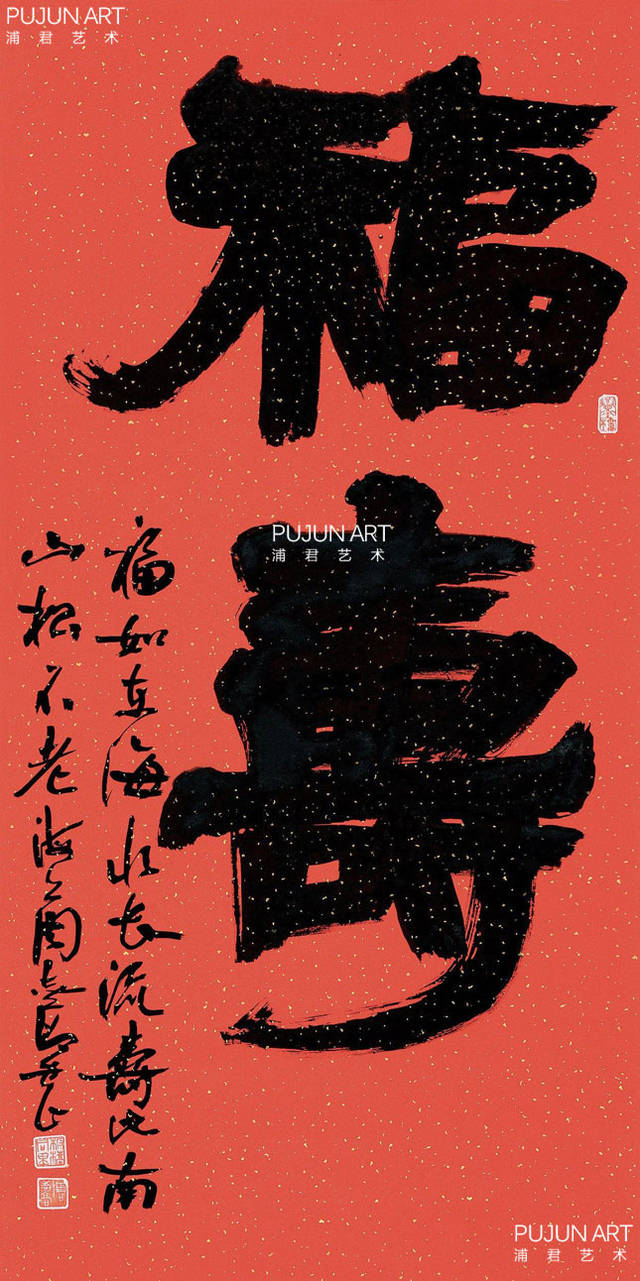 PUJUN ART
浦君艺术
福
壽
PUJUN ART
浦君艺术
福如东海水长流壽比南
山松不老海上周慧
PUJUN ART
浦君艺术